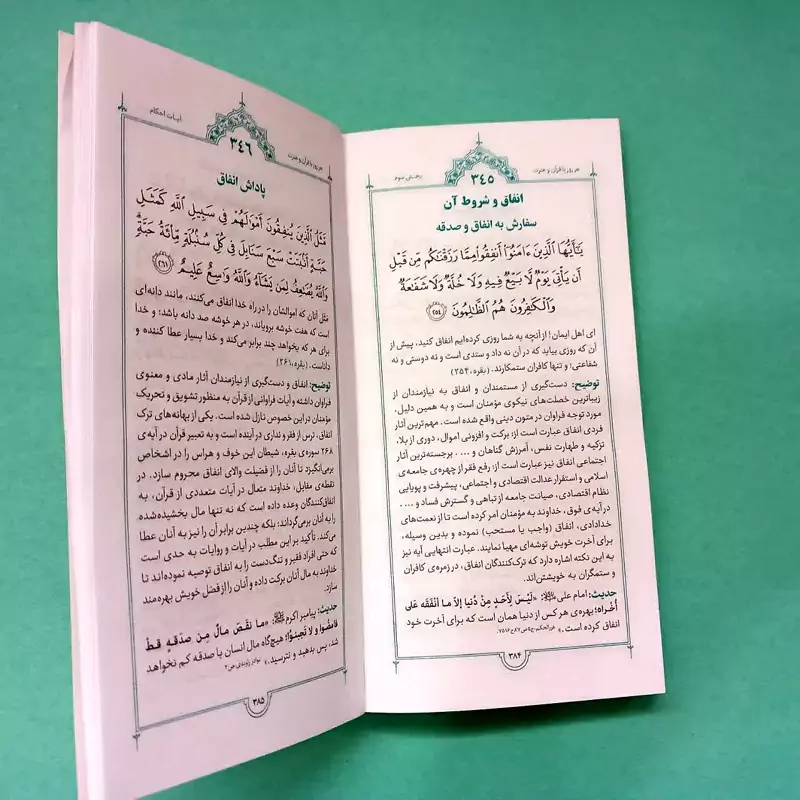 هر روز با قرآن و عترت
۳۴۵
بخش سوم
انفاق و شروط آن
سفارش به انفاق و صدقه
يَٰٓأَيُّهَا ٱلَّذِينَ ءَامَنُوٓا۟ أَنفِقُوا۟ مِمَّا رَزَقْنَٰكُم مِّن قَبْلِ
أَن يَأْتِىَ يَوْمٌ لَّا بَيْعٌ فِيهِ وَلَا خُلَّةٌ وَلَا شَفَٰعَةٌ
وَٱلْكَٰفِرُونَ هُمُ ٱلظَّٰلِمُونَ ﴿٢٥٤﴾
ای اهل ایمان! از آنچه به شما روزی کرده‌ایم انفاق کنید، پیش از
آن که روزی بیاید که در آن نه داد و ستدی است و نه دوستی و نه
شفاعتی؛ و تنها کافران ستمکارند. (بقره، ۲۵۴)
توضیح: دست‌گیری از مستمندان و انفاق به نیازمندان از
زیباترین خصلت‌های نیکوی مؤمنان است و به همین دلیل،
مورد توجه فراوان در متون دینی واقع شده است. مهم‌ترین آثار
فردی انفاق عبارت است از: برکت و افزونی اموال، دوری از بلا،
تزکیه و طهارت نفس، آمرزش گناهان و .... برجسته‌ترین آثار
اجتماعی انفاق نیز عبارت است از: رفع فقر از چهره‌ی جامعه‌ی
اسلامی و استقرار عدالت اقتصادی و اجتماعی، پیشرفت و پویایی
نظام اقتصادی، صیانت جامعه از تباهی و گسترش فساد و ....
در آیه‌ی فوق، خداوند به مؤمنان امر کرده است تا از نعمت‌های
خدادادی، انفاق (واجب یا مستحب) نموده و بدین وسیله،
برای آخرت خویش توشه‌ای مهیا نمایند. عبارت انتهایی آیه نیز
به این نکته اشاره دارد که ترک‌کنندگان انفاق، در زمره‌ی کافران
و ستمگران به خویشتن‌اند.
حدیث: امام علی: «لَیْسَ لِأحَدٍ مِنْ دُنْیا إلاّ ما انْفَقَهُ عَلی
أُخْراهُ؛ بهره‌ی هر کس از دنیا همان است که برای آخرت خود
انفاق کرده است.»
۳۸۴
هر روز با قرآن و عترت
۳۴۶
آیات احکام
پاداش انفاق
مَّثَلُ ٱلَّذِينَ يُنفِقُونَ أَمْوَٰلَهُمْ فِى سَبِيلِ ٱللَّهِ كَمَثَلِ
حَبَّةٍ أَنۢبَتَتْ سَبْعَ سَنَابِلَ فِى كُلِّ سُنۢبُلَةٍ مِّا۟ئَةُ حَبَّةٍ
وَٱللَّهُ يُضَٰعِفُ لِمَن يَشَآءُ وَٱللَّهُ وَٰسِعٌ عَلِيمٌ ﴿٢٦١﴾
مثل آنان که اموالشان را در راه خدا انفاق می‌کنند، مانند دانه‌ای
است که هفت خوشه برویاند، در هر خوشه صد دانه باشد؛ و خدا
برای هر که بخواهد چند برابر می‌کند و خدا بسیار عطا کننده و
داناست. (بقره، ۲۶۱)
توضیح: انفاق و دست‌گیری از نیازمندان آثار مادی و معنوی
فراوان داشته و آیات فراوانی از قرآن به منظور تشویق و تحریک
مؤمنان در این خصوص نازل شده است. یکی از بهانه‌های ترک
انفاق، ترس از فقر و نداری در آینده است و به تعبیر قرآن در آیه‌ی
۲۶۸ سوره‌ی بقره، شیطان این خوف و هراس را در اشخاص
برمی‌انگیزد تا آنان را از فضیلت والای انفاق محروم سازد. در
نقطه‌ی مقابل، خداوند متعال در آیات متعددی از قرآن، به
انفاق‌کنندگان وعده داده است که نه تنها مال بخشیده‌شده
را به آنان برمی‌گرداند؛ بلکه چندین برابر آن را نیز به آنان عطا
می‌کند. تأکید بر این مطلب در آیات و روایات به حدی است
که حتی افراد فقیر و تنگ‌دست را به انفاق توصیه نموده‌اند تا
خداوند به مال آنان برکت داده و آنان را از فضل خویش بهره‌مند
سازد.
حدیث: پیامبر اکرم: «ما نَقَصَ مالٌ مِن صَدَقَهٍ قَطُّ
فَأعطُوا و لا تَجبُنوا؛ هیچ‌گاه مال انسان با صدقه کم نخواهد
شد، پس بدهید و نترسید.»
۳۸۵